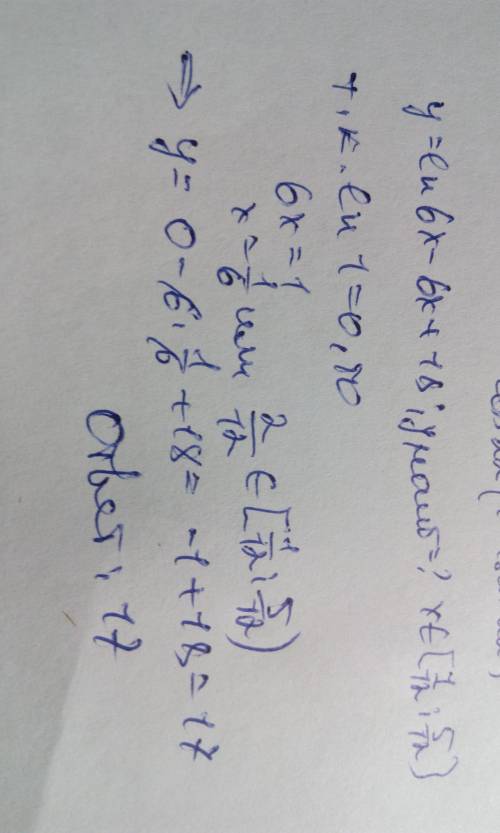 y = ln 6x - 6x + 18; yнаиб = ? x ∈ [1/12; 5/12]
т.к. ln 1 = 0, то
6x = 1
x = 1/6 или 2/12 ∈ [1/12; 5/12]
⇒ y = 0 - 6 · 1/6 + 18 = -1 + 18 = 17
Ответ: 17